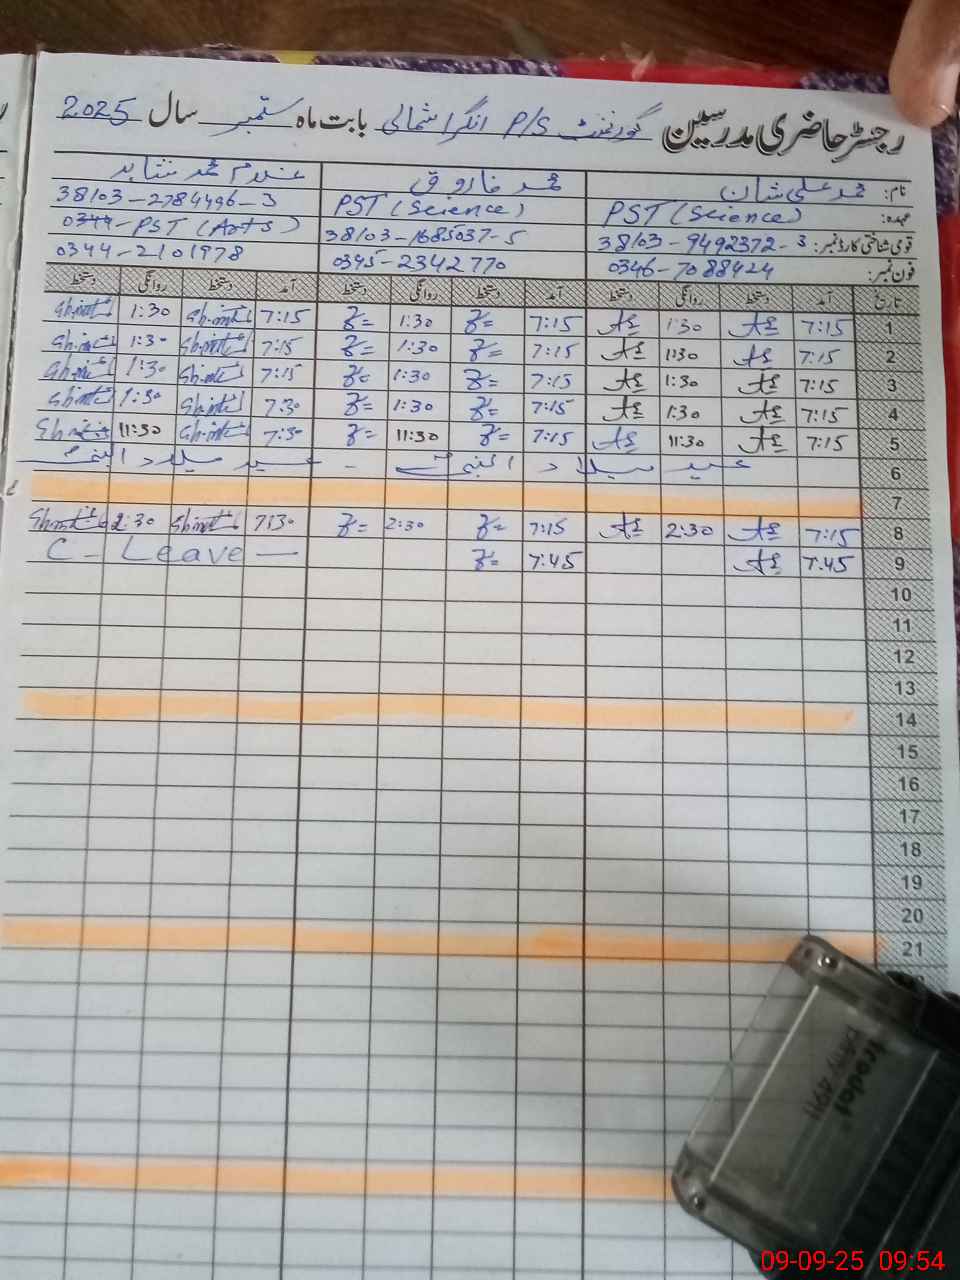 رجسٹر حاضری مدرسین گورنمنٹ P/S انگرا شمالی بابت ماہ ستمبر سال 2025
نام: محمد علی شان محمد فاروق غلام محمد شاہد
عہدہ: PST (Science) PST (Science) 38103-2784496-3
قومی شناختی کارڈ نمبر: 38103-9492372-3 38103-1685037-5 0344-PST (Arts)
فون نمبر: 0346-7088424 0345-2342770 0344-2101978
تاریخ آمد دستخط روانگی دستخط آمد دستخط روانگی دستخط آمد دستخط روانگی دستخط
1 7:15 1:30 7:15 1:30 7:15 1:30
2 7:15 1:30 7:15 1:30 7:15 1:30
3 7:15 1:30 7:15 1:30 7:15 1:30
4 7:15 1:30 7:15 1:30 7:30 1:30
5 7:15 11:30 7:15 11:30 7:30 11:30
6 عید میلاد النبیؐ - عید میلاد النبیؐ
7
8 7:15 2:30 7:15 2:30 7:30 2:30
9 7:45 7:45 C - Leave —
10
11
12
13
14
15
16
17
18
19
20
21
09-09-25 09:54